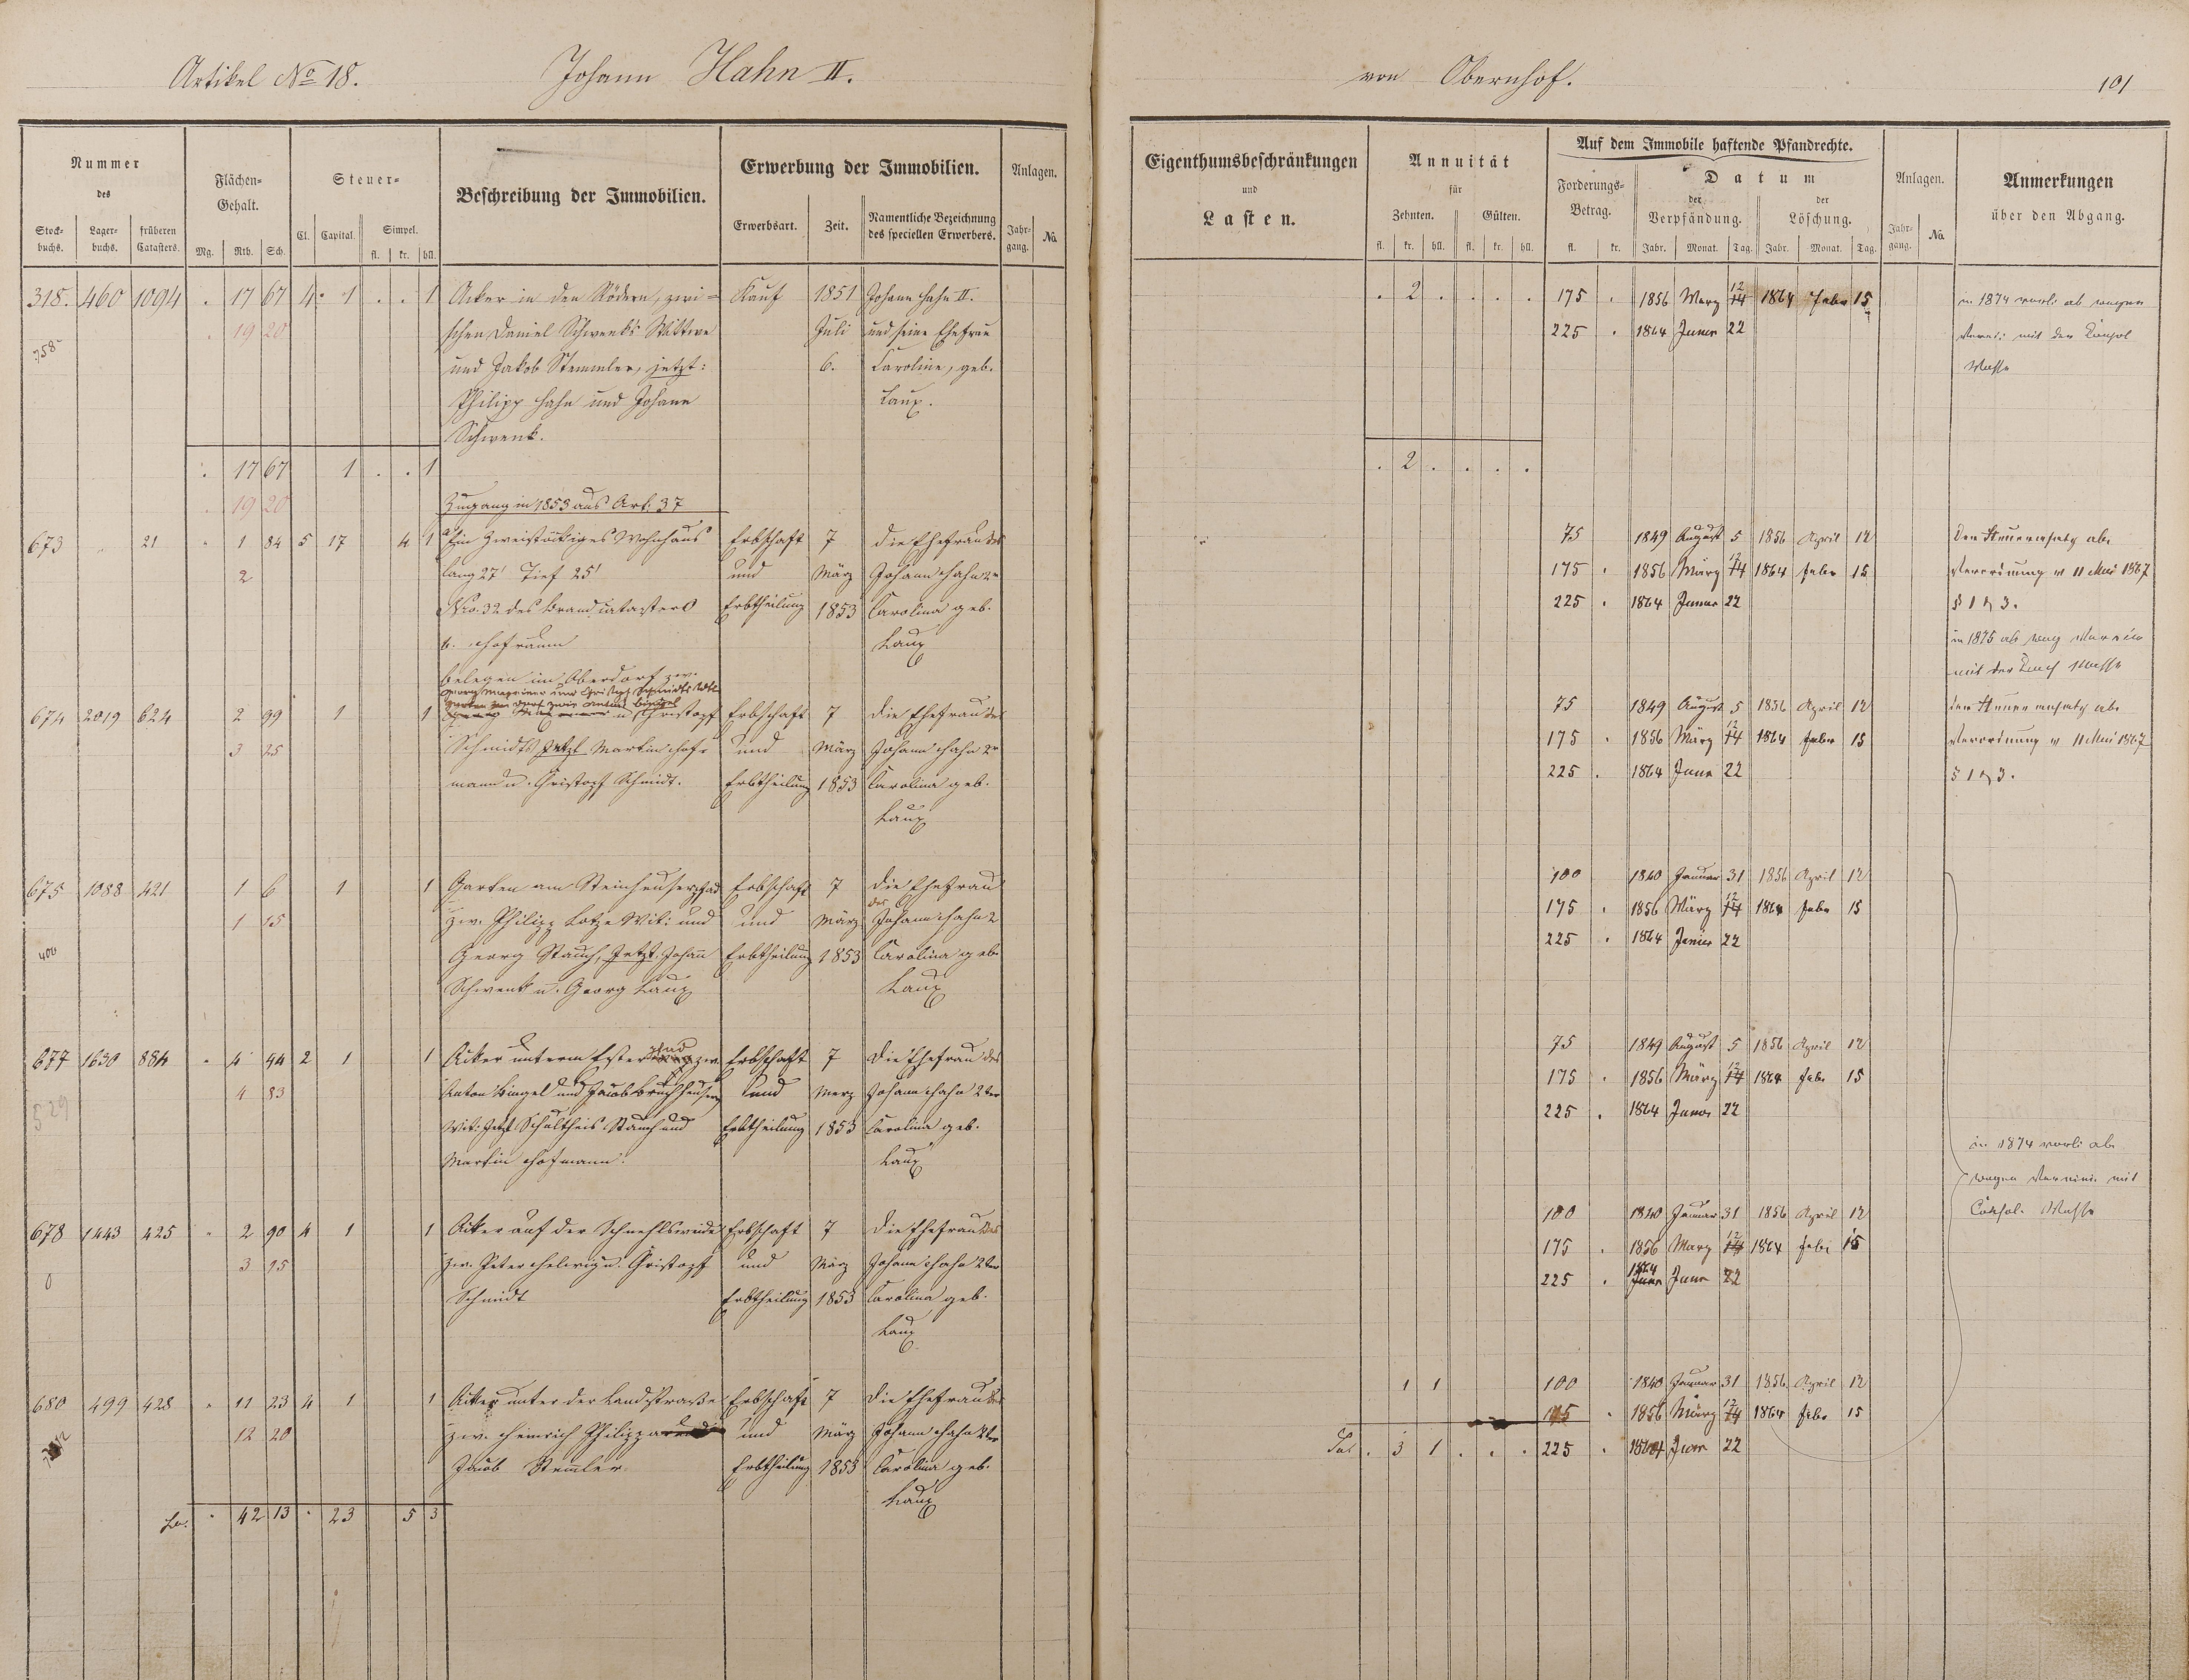 Artikel No 18. Johann Hahn II. von Obernhof. 101
Nummer des
Stockbuchs. Lagerbuchs. früheren Catasters.
Flächen-Gehalt.
Mg. Rth. Sch.
Steuer-
Cl. Capital. Simpel.
fl. kr. hll.
Beschreibung der Immobilien.
Erwerbung der Immobilien.
Erwerbsart. Zeit. Namentliche Bezeichnung des speciellen Erwerbers.
Anlagen.
Jahrgang. No.
Eigenthumsbeschränkungen
und
Lasten.
Annuität
für
Zehnten. Gülten.
fl. kr. hll. fl. kr. hll.
Auf dem Immobile haftende Pfandrechte.
Forderungs-Betrag.
fl. kr.
Datum
der Verpfändung. der Löschung.
Jahr. Monat. Tag. Jahr. Monat. Tag.
Anlagen.
Jahrgang. No.
Anmerkungen
über den Abgang.
318. 460 1094 . 17 67 4. 1 . . 1 Acker in den Rödern, zwi= Kauf 1851 Johann Hahn II.
. 19 20 schen Daniel Schwenk's Wittwe Juli und seine Ehefrau
758 und Jakob Stemmler, jetzt: 6. Caroline, geb.
Philipp Hahn und Johann Laux.
Schwenk.
. 17 67 1 . . 1
. 19 20
Zugang in 1853 aus Art. 37
673 21 1 84 5 17 4 1 a Ein zweistöckiges Wohnhaus Erbschaft 7 die Ehefrau des
2 lang 27' Tief 25' und März Johann Hahn 2r
Nro. 32 des Brandcatasters Erbtheilung 1853 Carolina geb.
b. Hofraum Laux
belegen im Oberdorf zw.
674 2019 624 2 99 1 1 u Christopf Erbschaft 7 die Ehefrau des
3 25 Schmidt, Jetzt Martin Hof- und März Johann Hahn 2r
mann u. Christopf Schmidt. Erbtheilung 1853 Carolina geb.
Laux
675 1088 421 1 6 1 1 Garten am Steinheuserpfad Erbschaft 7 die Ehefrau
des
1 15 zw. Philipp Lotze Wit: und und März Johann Hahn 2
400 Georg Stauch, Jetzt: Johann Erbtheilung 1853 Carolina geb
Schwenk u. Georg Laux Laux
677 1630 884 4 44 2 1 1 Acker unterm pfad zw. Erbschaft 7 die Ehefrau des
4 83 Anton Bingel und Jacob Bruchheuser und Merz Johann Hahn 2ter
529 Wit: Jetzt Schultheis Stauch und Erbtheilung 1853 Carolina geb.
Martin Hofmann. Laux
678 1443 425 2 90 4 1 1 Acker auf der Erbschaft 7 die Ehefrau des
3 15 zw. Peter Helwig u. Christopf und März Johann Hahn 2ter
0 Schmidt Erbtheilung 1853 Carolina geb.
Laux
680 499 428 11 23 4 1 1 Acker unter der Landstraße Erbschaft 7 die Ehefrau des
12 20 zw. Heinrich Philipp und März Johann Hahn 2ter
Jacob Stemler Erbtheilung 1853 Carolina geb.
Laux
42 13 . 23 5 3
. 2 . . . . 175 . 1856 Merz 12 14 1864 Febr 15 in 1874 ab wegen
225 . 1864 Januar 22 mit der Consol
Masse
. 2 . . . .
75 1849 August 5 1856 April 12 Der Steueransatz ab.
175 . 1856 März 12 14 1864 Febr 15 Verordnung v 11 Mai 1867
225 . 1864 Januar 22 § 1 3.
in 1875 ab weg Verein
mit der Masse
75 1849 August 5 1856 April 12 Der Steueransatz ab.
175 . 1856 März 12 14 1864 Febr 15 Verordnung v 11 Mai 1867
225 . 1864 Januar 22 § 1 3.
100 1840 Januar 31 1856 April 12
175 . 1856 März 12 14 1864 Febr 15
225 . 1864 Januar 22
75 1849 August 5 1856 April 12
175 . 1856 März 12 14 1864 Febr 15
225 . 1864 Januar 22
in 1874 ab
wegen Verein. mit
Consol. Masse
100 1840 Januar 31 1856 April 12
175 . 1856 März 12 14 1864 Febr 15
225 . 1864 Januar 22
1 1 100 1840 Januar 31 1856 April 12
175 . 1856 März 12 14 1864 Febr 15
. 3 1 . . . 225 . 1864 Januar 22